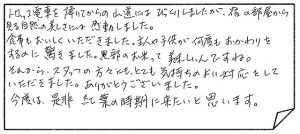 トロッコ電車を降りてからの山道にはびっくりしましたが、宿の部屋から
見る自然の美しさには感動しました。
食事もおいしくいただきました。主人や子供が何度もおかわりを
するのに驚きました。黒部のお米って美味しいんですね。
それから、スタッフの方々にも、とても気持ちのよい対応をして
いただきました。ありがとうございました。
今度は、是非紅葉の時期に来たいと思います。